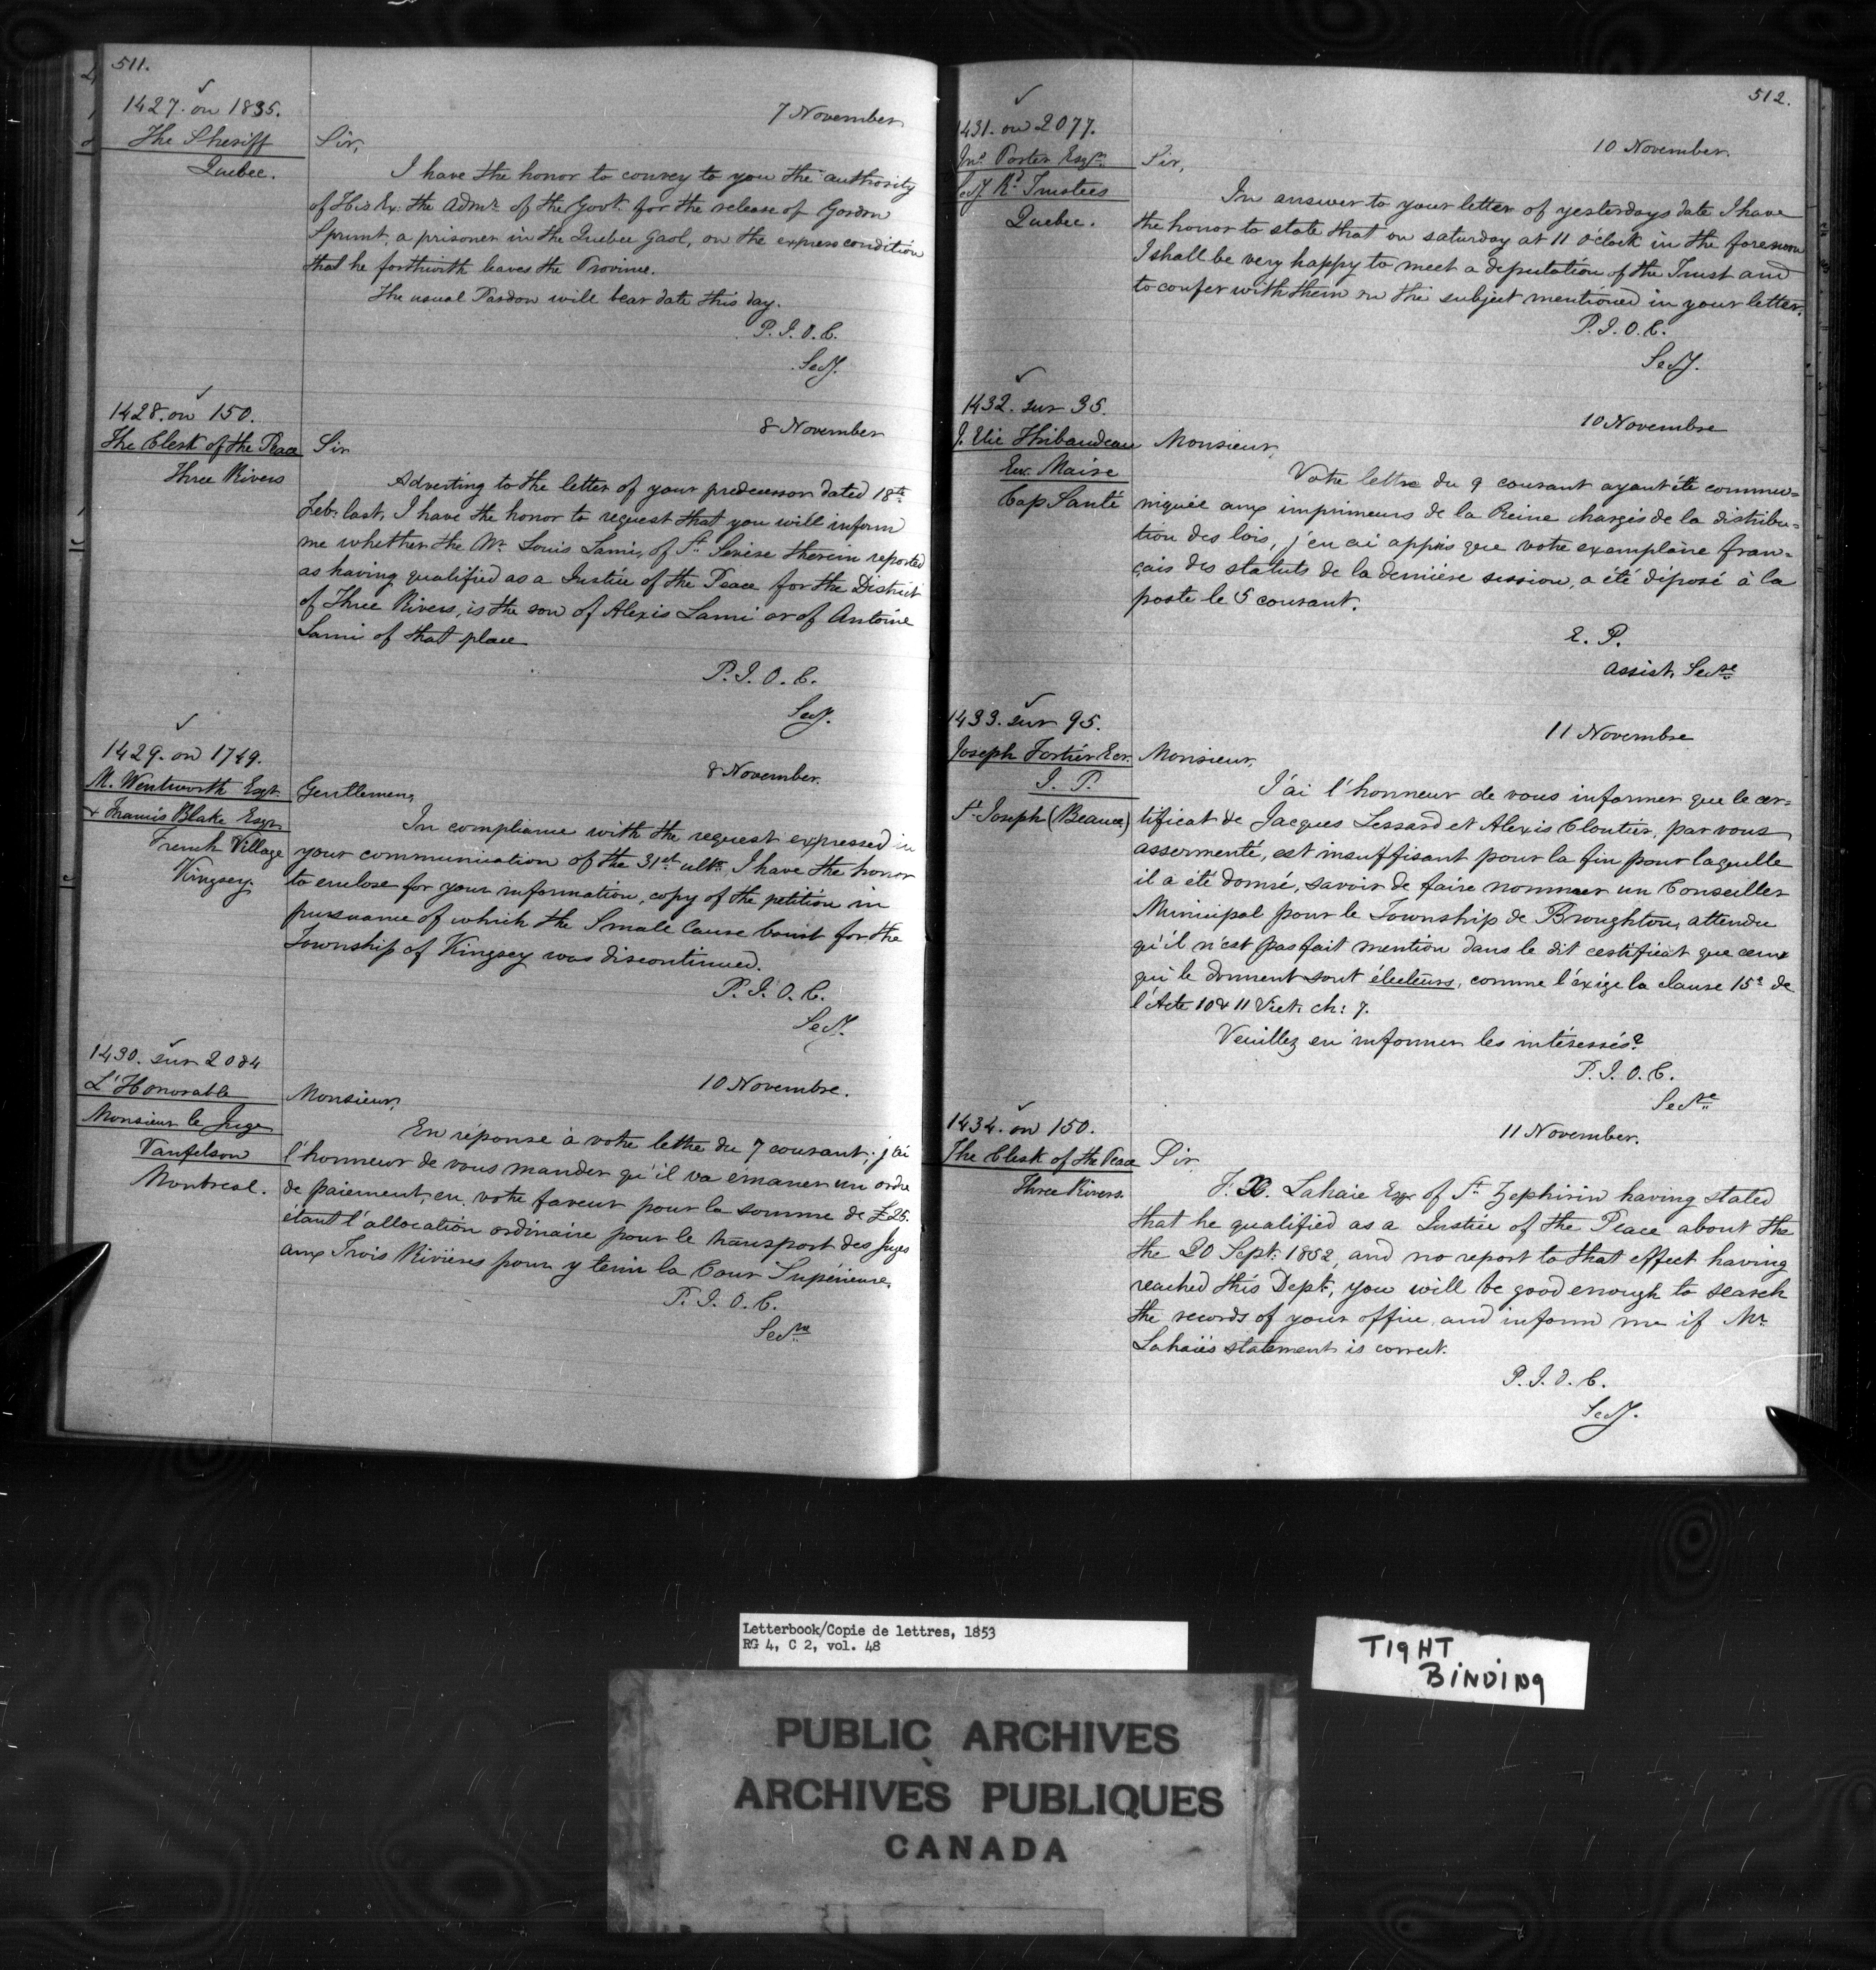 511.
1427. on 1835.
The Sheriff
Quebec.
7 November
Sir,
I have the honor to convey to you the authority
of His Ex: the Admr. of the Govt. for the release of Gordon
Sprunt, a prisoner in the Quebec Gaol, on the express condition
that he forthwith leaves the Province.
The usual Pardon will bear date this day.
P. J. O. C.
Secy.
1428. on 150.
The Clerk of the Peace
Three Rivers
8 November
Sir
Adverting to the letter of your predecessor dated 18th
Feb: last, I have the honor to request that you will inform
me whether the Mr. Louis Lami, of St. therein reported
as having qualified as a Justice of the Peace for the District
of Three Rivers, is the son of Alexis Lami or of Antoine
Lami of that place
P. J. O. C.
Secy.
1429. on 1749.
M. Wentworth Esqr.
& Francis Blake Esqr.
French Village
Kingsey.
8 November.
Gentlemen,
In compliance with the request expressed in
your communication of the 31st ulto. I have the honor
to enclose for your information, copy of the petition in
pursuance of which the Small Cause Court for the
Township of Kingsey was discontinued.
P. J. O. C.
Secy.
1430. sur 2084
L'Honorable
Monsieur le Juge
Vanfelson
Montreal.
10 Novembre.
Monsieur,
En réponse à votre lettre du 7 courant, j'ai
l'honneur de vous mander qu'il va émaner un ordre
de paiement en votre faveur pour la somme de £25.
étant l'allocation ordinaire pour le transport des Juges
aux Trois Rivières pour y tenir la Cour Supérieure.
P. J. O. C.
Secre
512.
1431. on 2077.
Jno. Porter Esqr.
Secy. Rd. Trustees
Quebec.
10 November.
Sir,
In answer to your letter of yesterdays date I have
the honor to state that on saturday at 11 o'clock in the forenoon
I shall be very happy to meet a deputation of the Trust and
to confer with them on the subject mentioned in your letter.
P. J. O. C.
Secy.
1432. sur 35.
J. Elie Thibaudeau
Ecr. Maire
Cap Santé
10 Novembre
Monsieur,
Votre lettre du 9 courant ayant été commu=
niquée aux imprimeurs de la Reine chargés de la distribu=
tion des lois, j'en ai appris que votre exemplaire fran=
çais des statuts de la dernière session, a été déposé à la
poste le 5 courant.
E. P.
Assist. Secre
1433. sur 95.
Joseph Fortier Ecr.
J. P.
St. Joseph (Beauce)
11 Novembre
Monsieur,
J'ai l'honneur de vous informer que le cer=
tificat de Jacques Lessard et Alexis Cloutier, par vous
assermenté, est insuffisant pour la fin pour laquelle
il a été donné, savoir de faire nommer un Conseiller
Municipal pour le Township de Broughton, attendu
qu'il n'est pas fait mention dans le dit certificat que ceux
qui le donnent sont électeurs, comme l'éxige la clause 15e de
l'Acte 10 & 11 Vict. ch: 7.
Veuillez en informer les intéressés?
P. J. O. C.
Secre
1434. on 150.
The Clerk of the Peace
Three Rivers.
11 November.
Sir,
F. X. Lahaie Esqr of St. Zephirin having stated
that he qualified as a Justice of the Peace about the
the 20 Sept: 1852, and no report to that effect having
reached this Dept., you will be good enough to search
the records of your office, and inform me if Mr.
Lahaies statement is correct.
P. J. O. C.
Secy.
Letterbook/Copie de lettres, 1853
RG 4, C 2, vol. 48
TIGHT
BINDING
PUBLIC ARCHIVES
ARCHIVES PUBLIQUES
CANADA